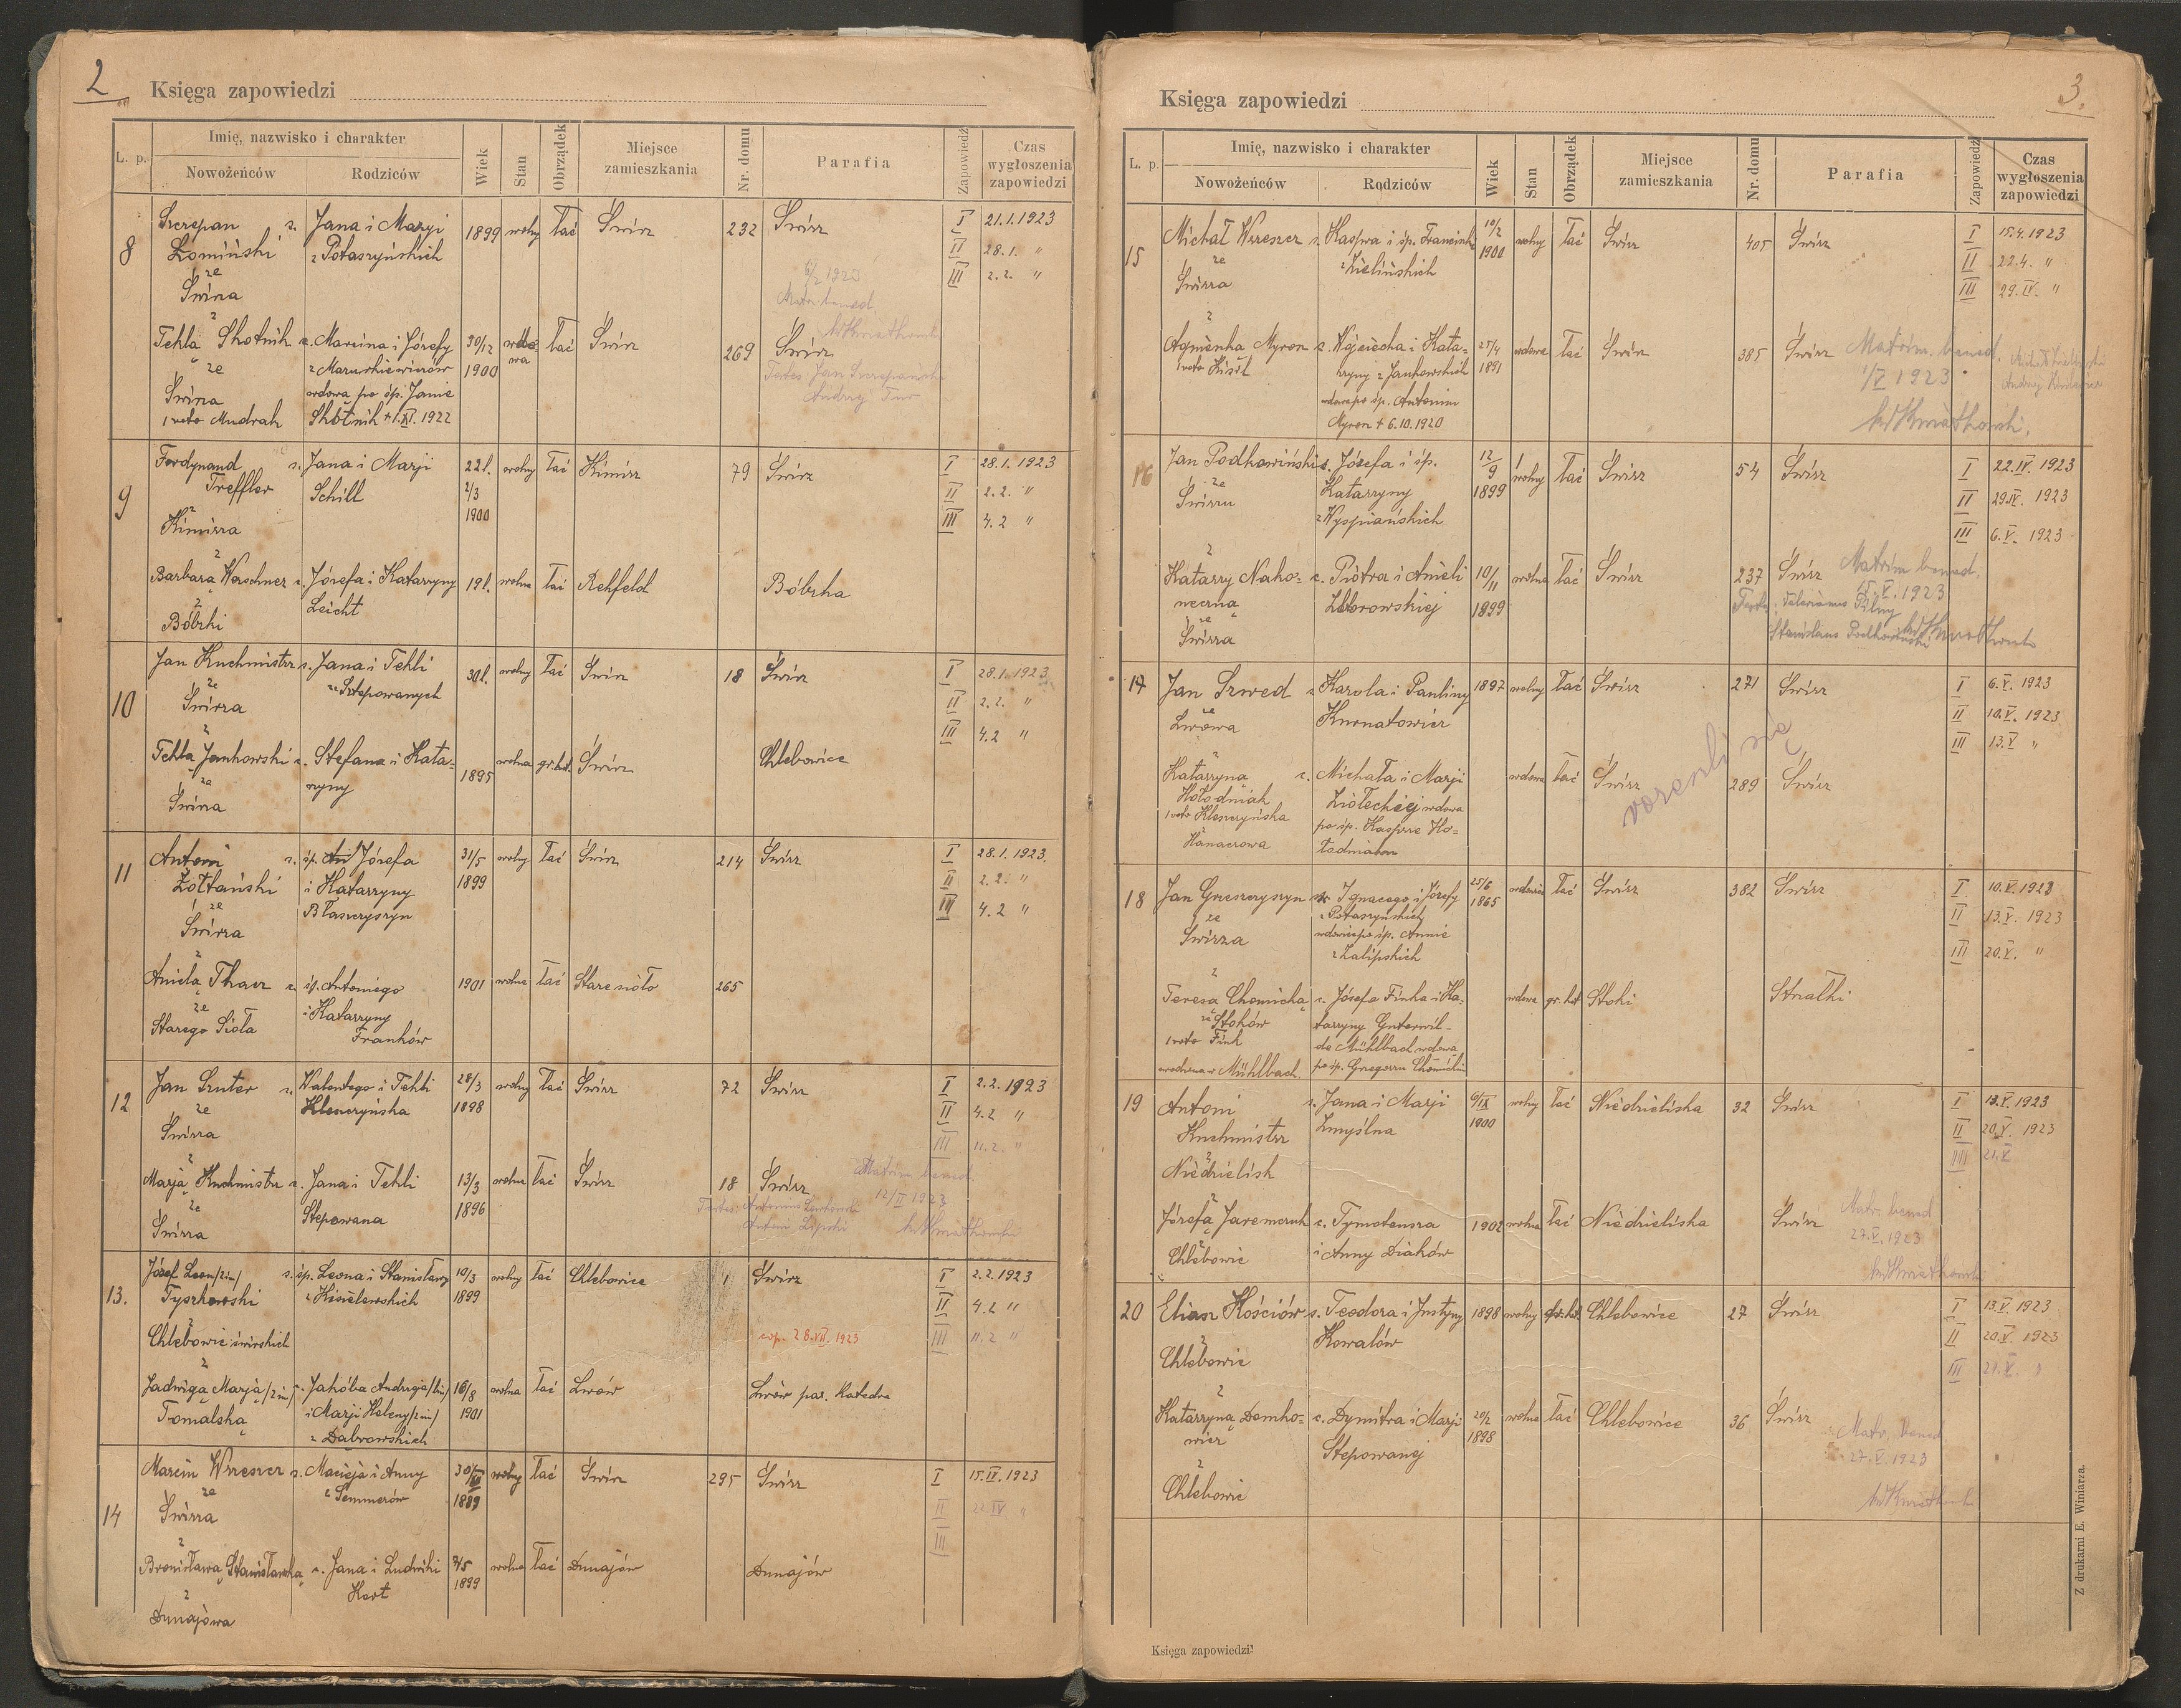 2
Księga zapowiedzi
L. p.
Imię, nazwisko i charakter
Nowożeńców
Rodziców
Wiek
Stan
Obrządek
Miejsce zamieszkania
Nr. domu
Parafia
Zapowiedź
Czas wygłoszenia zapowiedzi
8
Szczepan s. Jana i Maryi 1899 wolny łać Świrz 232 Świrz I 21.1.1923
Łomiński z Potaszyńskich II 28.1. "
ze III 2.2. "
Świrza
z
Tekla Skotnik c. Marcina i Józefy 30/12 wdowa łać Świrz 269 Świrz
ze 1900
Świrza wdowa po śp. Janie
1 voto Mudrak Skotnik + 1.XI.1922
9
Ferdynand s. Jana i Marji 22 l. wolny łać Kimirz 79 Świrz I 28.1.1923
Treffler Schill 2/3 II 2.2. "
z 1900 III 4.2 "
Kimirza
z
Barbarą Worschner c. Józefa i Katarzyny 19 l. wolna łać Rehfeld Bóbrka
z Leicht
Bóbrki
10
Jan Kuchmistrz s. Jana i Tekli 30 l. wolny łać Świrz 18 Świrz I 28.1.1923
ze ze Stepowanych II 2.2. "
Świrza III 4.2 "
z
Teklą Jankowski c. Stefana i Kata- 1895 wolna gr. kat. Świrz Chlebowice
ze rzyny
Świrza
11
Antoni s. śp. Józefa 31/5 wolny łać Świrz 214 Świrz I 28.1.1923.
Żółtański i Katarzyny 1899 II 2.2. "
ze Błaszczyszyn III 4.2 "
Świrza
z
Anielą Tkacz c. śp. Antoniego 1901 wolna łać Stare sioło 265
ze i Katarzyny
Starego Sioła Franków
12
Jan Szuter s. Walentego i Tekli 28/3 wolny łać Świrz 72 Świrz I 2.2.1923
ze Kleszczyńska 1898 II 4.2 "
Świrza III 11.2. "
z
Marją Kuchmistrz c. Jana i Tekli 13/3 wolna łać Świrz 18 Świrz Matrim. bened.
ze Stepowana 1896 12/II 1923
Świrza
13.
Józef Leon /2 im/ s. śp. Leona i Stanisławy 19/3 wolny łać Chlebowice 1 Świrz I 2.2.1923
Tyszkowski z Kisielewskich 1899 II 4.2 "
z cop. 28.VII.1923 III 11.2 "
Chlebowic świrskich
z
Jadwigą Marją /2 im/ c. Jakóba Andrzeja 16/8 wolna łać Lwów Lwów par. Katedra
Tomalską i Marji Heleny /2 im/ 1901
z Dąbrowskich
14
Marcin Wrzeszcz s. Macieja i Anny wolny łać Świrz 295 Świrz I 15.IV.1923
ze z Semmerów 1889 II 22.IV "
Świrza III
z
Bronisławą Stanisławską c. Jana i Ludwiki 1899 wolna łać Dunajów Dunajów
z Kert
Dunajowa
3.
Księga zapowiedzi
L. p.
Imię, nazwisko i charakter
Nowożeńców
Rodziców
Wiek
Stan
Obrządek
Miejsce zamieszkania
Nr. domu
Parafia
Zapowiedź
Czas wygłoszenia zapowiedzi
15
Michał Wrzeszcz s. Kaspra i śp. 10/2 wolny łać Świrz 405 Świrz I 15.4.1923
ze z Zielińskich 1900 II 22.4. "
Świrza III 29.IV. "
z
Agnieszka Myron c. Wojciecha i Kata- 25/4 wdowa łać Świrz 385 Świrz Matrim. bened.
1 voto Kisił rzyny z Jankowskich 1891 1/V 1923
wdowa po śp. Antonim
Myron + 6.10.1920
16
Jan Podkowiński s. Józefa i śp. 12/9 wolny łać Świrz 54 Świrz I 22.IV.1923
ze Katarzyny 1899 II 29.IV. 1923
Świrzu z Wyspiańskich III 6.V. 1923
z
Katarzy Nako- c. Piotra i Anieli 10/11 wolna łać Świrz 237 Świrz Matrim bened.
neczną Zborowskiej 1899 15.V.1923
ze
Świrza
17
Jan Szwed s. Karola i Pauliny 1897 wolny łać Świrz 271 Świrz I 6.V.1923
ze Kurnatowicz II 10.V.1923
Lwowa III 13.V "
z
Katarzyną c. Michała i Marji wdowa łać Świrz 289 Świrz
Hołodniak Ziołeckiej wdowa
1 voto Kleszczyńska po śp. Kasprze Ho-
z
Hanaczowa
18
Jan Gneszczyszyn s. Ignacego i Józefy 25/6 wdowiec łać Świrz 382 Świrz I 10.V.1923
ze z Potaszyńskich 1865 II 13.V. 1923
Świrza wdowiec po śp. Annie III 20.V. "
z Zalipskich
z
Teresa Chomicka c. Józefa Finka i Ka- wdowa gr. kat. Stoki Strzałki
ze Stoków tarzyny
1 voto Fink de Mühlbach wdowa
urodzona w Mühlbach
19
Antoni s. Jana i Marji 6/IX wolny łać Niedzieliska 32 Świrz I 13.V.1923
Kuchmistrz Zmyślna 1900 II 20.V. 1923
z III 21.V
Niedzielisk
z
Józefą Jaremczuk c. Tymoteusza 1902 wolna łać Niedzieliska Świrz Matr. bened
z i Anny Diaków 27.V.1923
Chlebowic
20
Eliasz Kościów s. Teodora i Justyny 1898 wolny gr. kat. Chlebowice 27 Świrz I 13.V.1923
z Kowalów II 20.V. 1923
Chlebowic III 21.V. "
z
Katarzyną Demko- c. Dymitra i Marji 20/2 wolna łać Chlebowice 36 Świrz Matr. bened
wicz Stepowanej 1898 27.V.1923
z
Chlebowic
Księga zapowiedzi
Z drukarni E. Winiarza.